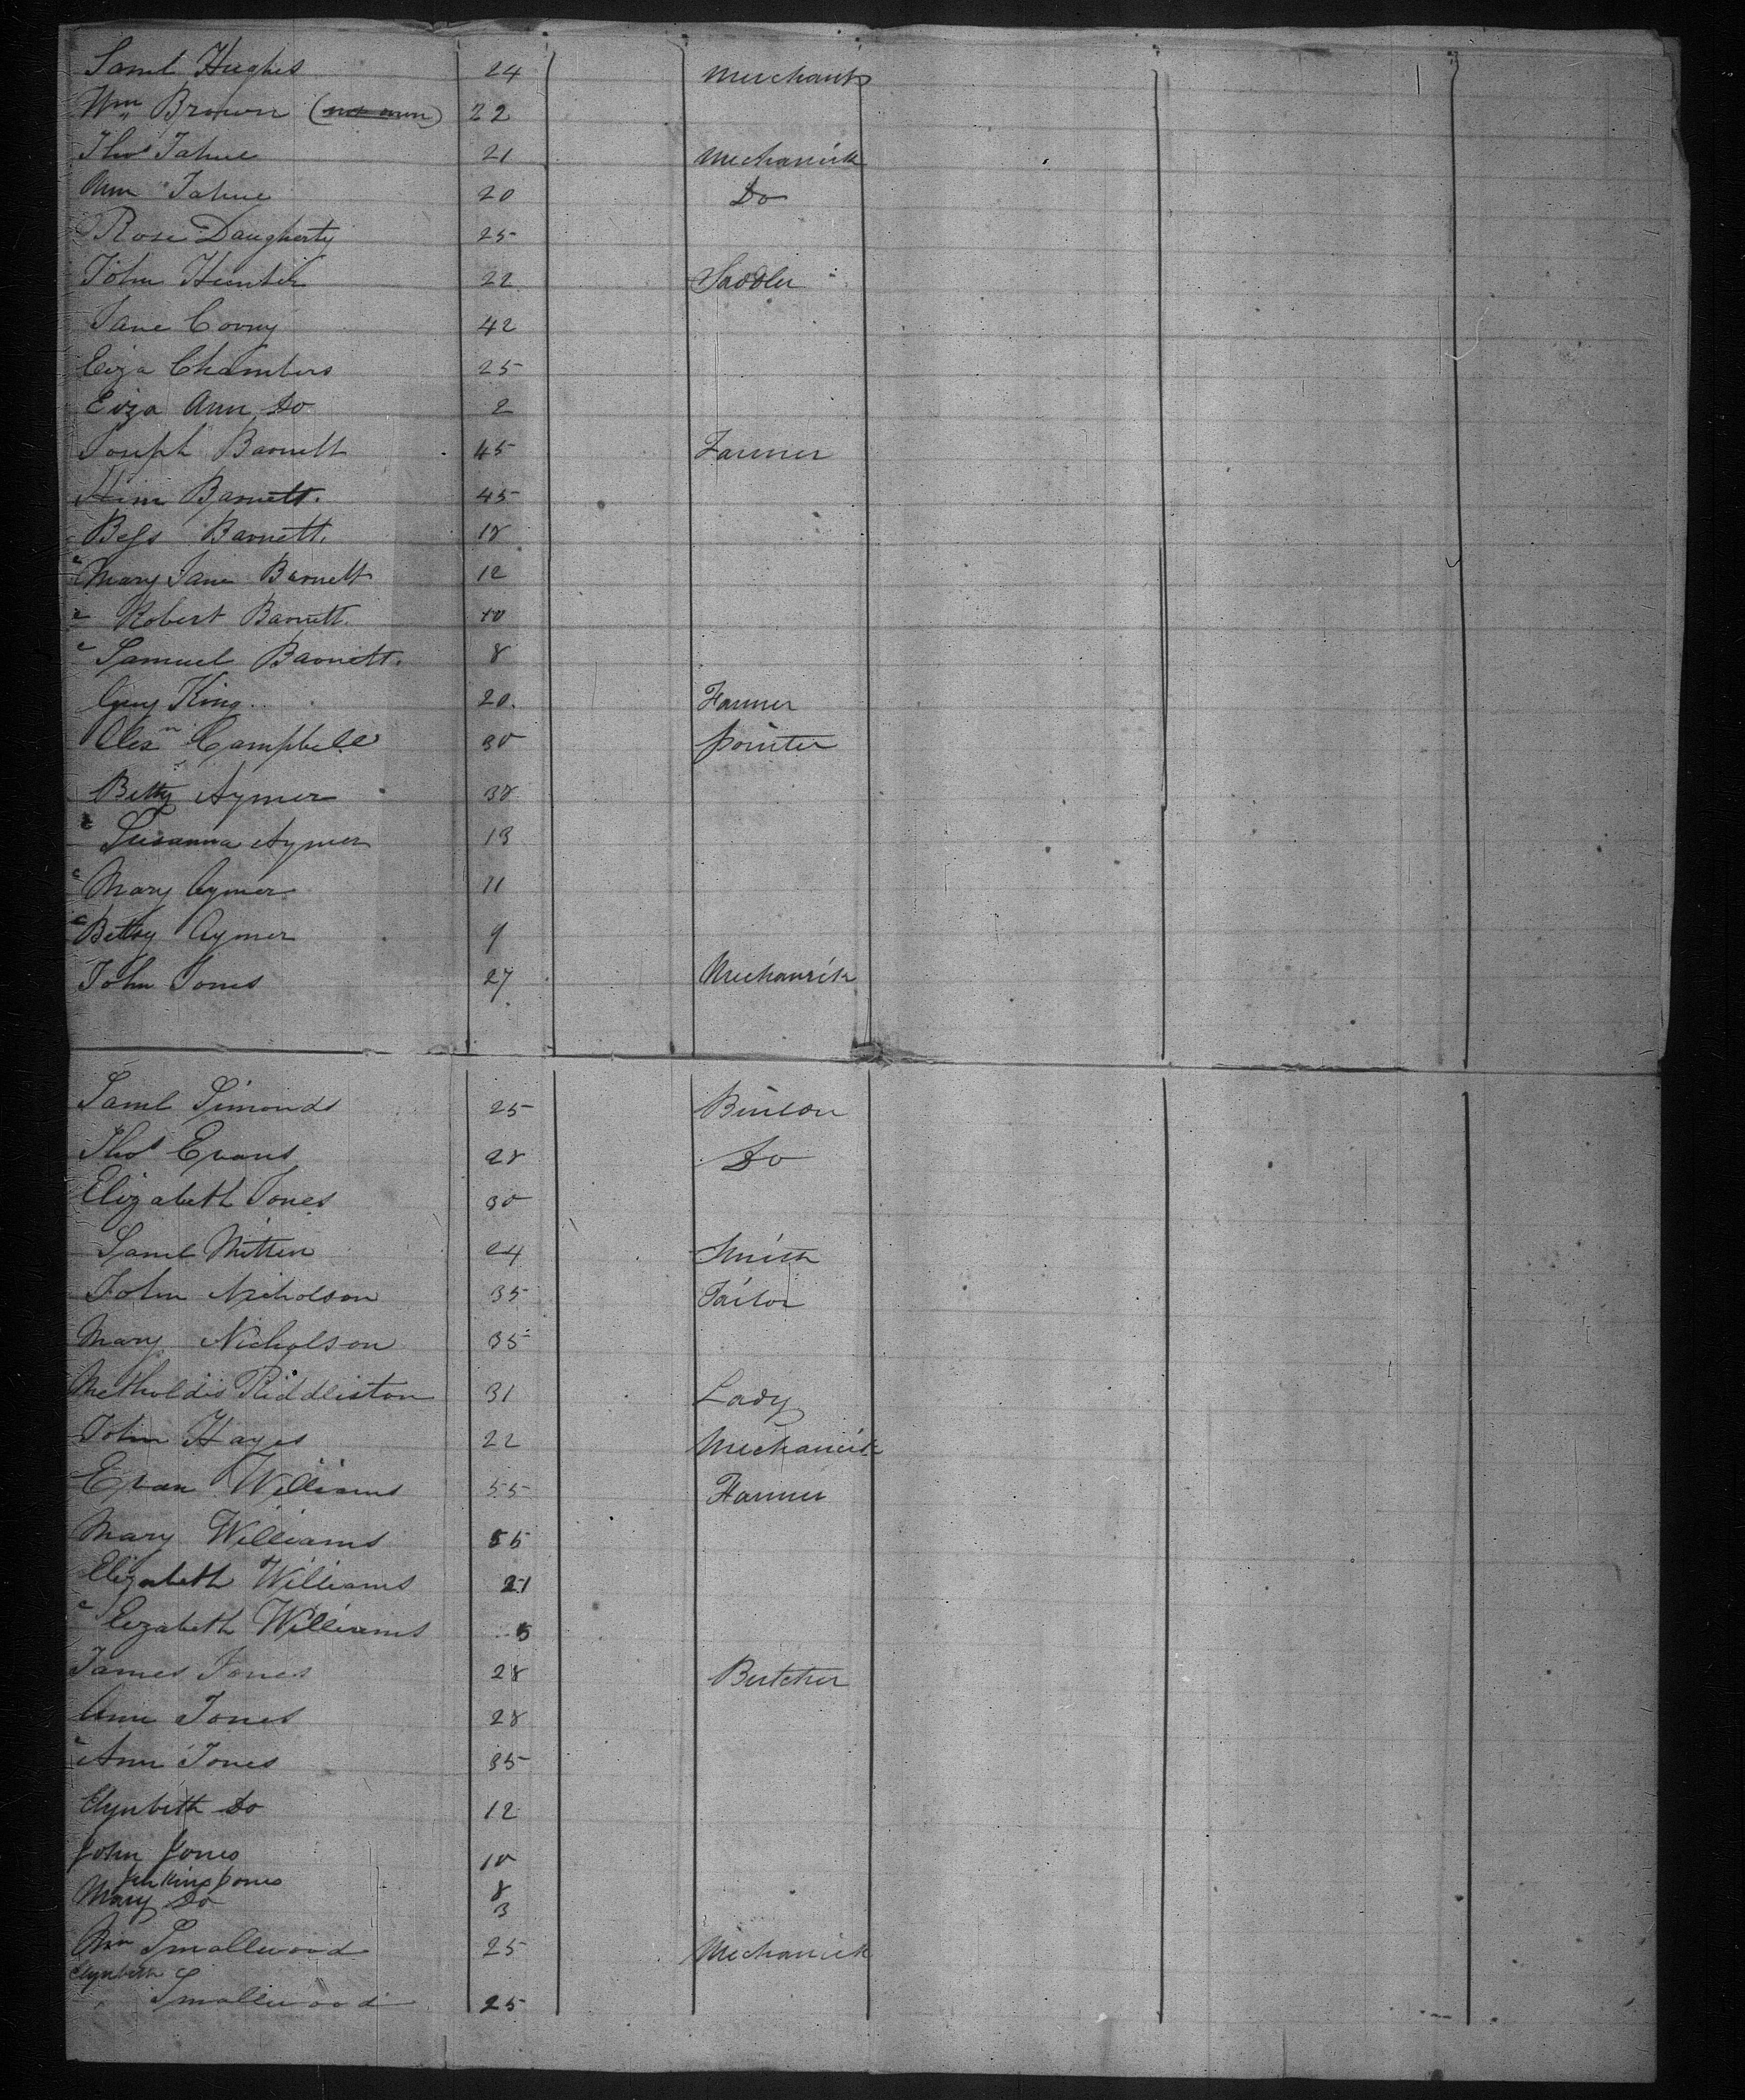 Saml Hughes 24 Merchant
Wm Brown 22
Thos Tahue 21 Mechanick
Ann Tahue 20 Do
Rose Daugherty 25
John Hunter 22 Saddler
Jane Corry 42
Eliza Chambers 25
Eliza Ann Do 2
Joseph Barnett 45 Farmer
Barnett. 45
Bess Barnett. 18
Mary Jane Barnett 12
Robert Barnett. 10
Samuel Barnett. 8
Guy King 20. Farmer
Alexr Campbell 30 painter
Betty Aymer 38
Susanna Aymer 13
Mary Aymer 11
Betsy Aymer 9
John Jones 27 Mechanick
Saml Simonds 25
Thos Evans 28 Do
Elizabeth Jones 30
Saml Mitten 24 Smith
John Nicholson 35 Tailor
Mary Nicholson 35
Riddliston 31 Lady
John Hayes 22 Mechanick
Evan Williams 55 Farmer
Mary Williams 55
Elizabeth Williams 21
Elizabeth Williams 5
James Jones 28 Butcher
Ann Jones 28
Ann Jones 35
Elynbeth Do 12
John Jones 10
Jenkins Jones 8
Mary Do 3
Wm Smallwood 25 Mechanick
Elynbeth
Smallwood 25